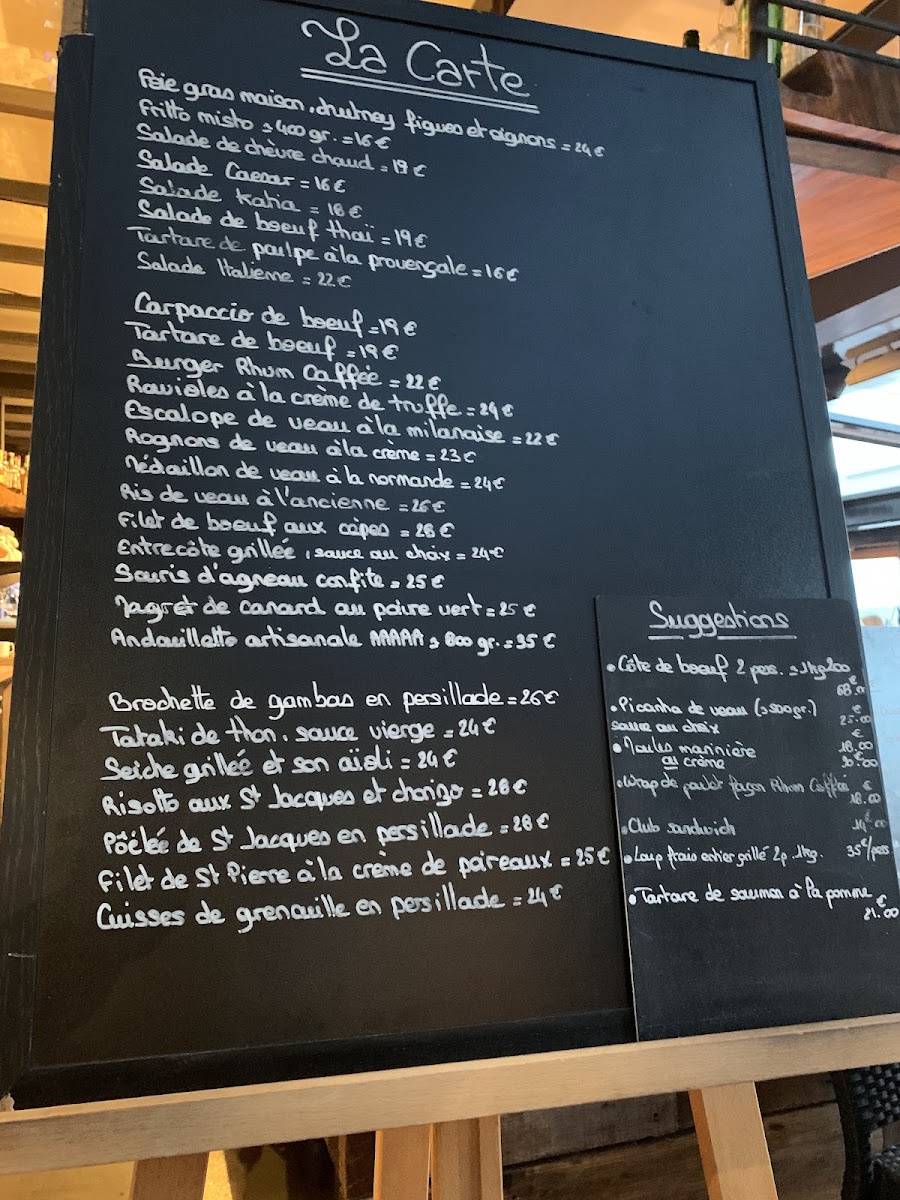 La Carte
Foie gras maison, chutney figues et oignons = 24 €
Fritto misto ≥ 400 gr. = 16 €
Salade de chèvre chaud = 17 €
Salade Caesar = 16 €
Salade Katia = 18 €
Salade de boeuf thaï = 19 €
Tartare de poulpe à la provençale = 16 €
Salade Italiène = 22 €
Carpaccio de boeuf = 19 €
Tartare de boeuf = 19 €
Burger Rhum Caffée = 22 €
Ravioles à la crème de truffe = 24 €
Escalope de veau à la milanaise = 22 €
Rognons de veau à la crème = 23 €
Médaillon de veau à la normande = 24 €
Ris de veau à l'ancienne = 26 €
Filet de boeuf aux cèpes = 28 €
Entrecôte grillée, sauce au choix = 24 €
Souris d'agneau confite = 25 €
Magret de canard au poivre vert = 25 €
Andouillette artisanale AAAAA ≥ 800 gr. = 35 €
Brochette de gambas en persillade = 26 €
Tataki de thon, sauce vierge = 24 €
Seiche grillée et son aïoli = 24 €
Risotto aux St Jacques et chorizo = 28 €
Pôêlée de St Jacques en persillade = 28 €
Filet de St Pierre à la crème de poireaux = 25 €
Cuisses de grenouille en persillade = 24 €
Suggestions
• Côte de boeuf 2 pers. ≥ 1kg200
€
68.00
• Picanha de veau (≥ 500gr.) €
sauce au choix 25.00
€
• Moules marinière 18.00
au crème 20.00
• Wrap de poulet façon Rhum Caffée €
18.00
• Club sandwich 14.00 €
• Loup frais entier grillé 2p. 1kg. 35€/pers
• Tartare de saumon à la pomme €
21.00